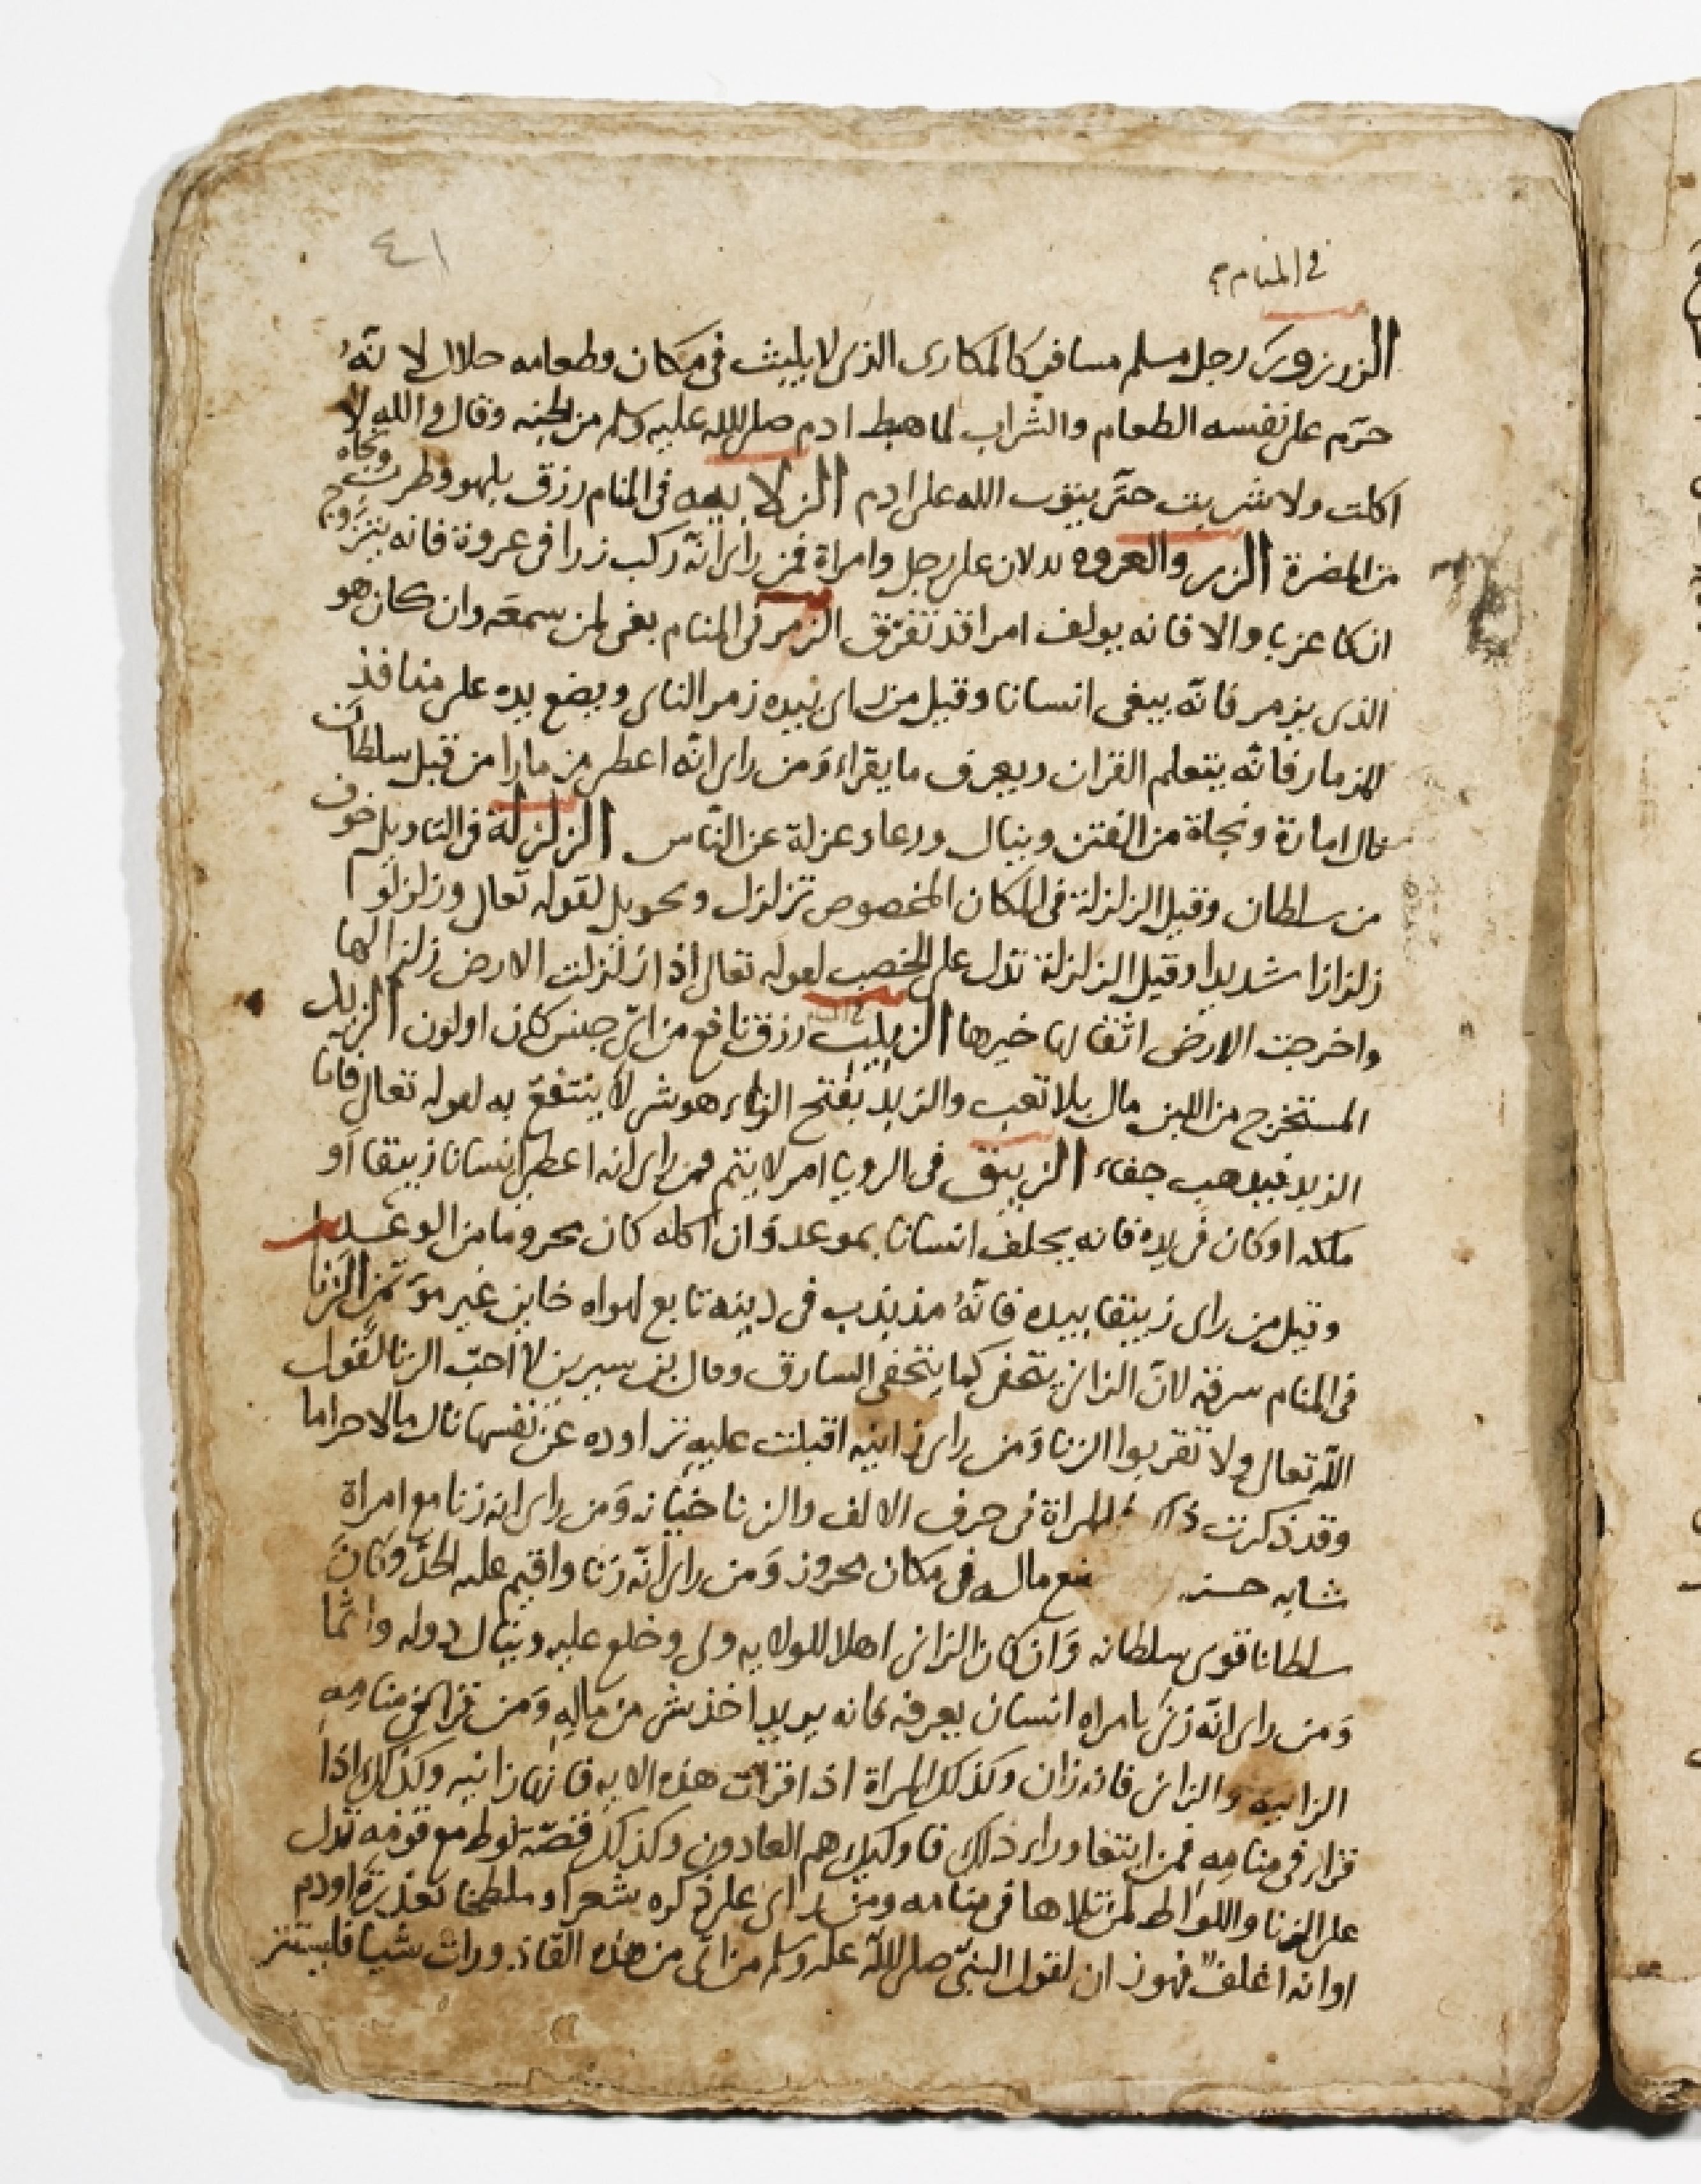 ٤١
في المنام
الزرزور رجل مسلم مسافر كالمكارى الذى لا يلبث فى مكان وطعامه حلال لانهُ
حرّم على نفسه الطعام والشراب لما هبط ادم صلى الله عليه وسلم من الجنه وقال والله لا
اكلت ولا شربت حتّى يتوب الله على ادم الزلابيه فى المنام رزق بلهو وطرب ونجاه
من المضرة الزر والعروه يدلان على رجل وامراة فمن راى انّه ركب زرا فى عروة فانه يتزوج
ان كا عزبا والا فانه يولف امرا قد تفرّق الزمر فى المنام بغى لمن سمعه وان كان هو
الذى يزمر فانّه يبغى انسانا وقيل من راى بيده زمر الناى ويضع يده على منافذ
المزمار فانّه يتعلم القران ويعرف ما يقراء وَمن راى انّه اعطى مزمارا من قبل سلطان
نال امارة ونجاة من الفتن وينال ودعا وعزلة عن النّاس الزلزلة فى التاويل خوف
من سلطان وقيل الزلزلة فى المكان المخصوص تزلزل وتحويل لقوله تعالى وزلزلوا
زلزازا شديدا وقيل الزلزلة تدل على الخصب لقوله تعالى اذا زلزلت الارض زلزالها
واخرجت الارض اثقالها خيرها الزبيب رزق نافع من اىّ جنس كان او لون الزبد
فى المنام
المستخرج من اللبن مال بلا تعب والزبد بفتح الزاء هو شى لا ينتفع به لقوله تعالى فاما
الزبد فيذهب جفاء الزيبق فى الرويا امر لا يتم فمن راى انه اعطى انسانا زيبقا او
ملكه او كان فى يده فانه يخلف انسانا بموعد وَان اكله كان محروما من الوعد
وقيل من راى زيبقا بيده فانّهُ مذبذب فى دينه تابع لهواه خاين غير موتمن الزنا
فى المنام سرقه لانّ الزانى يتخفى كما يتخفى السارق وقال بن سيرين لا احبّ الزنا لقول
الله تعالى ولا تقربوا الزنا وَمن راى زانيه اقبلت عليه تراوده عن نفسها نال مالا حراما
وقد ذكرت ذلك المراة فى حرف الالف والزنا خيانه وَمن راى انه زنا مع امراة
شابه حسنه مع ماله فى مكان محروز وَمن راى انّه زنا واقيم عليه الحدّ وكان
سلطانا قوى سلطانه وَان كان الزانى اهلا للولايه ولى وخلع عليه وينال دوله وانما
وَمن راى انّه زنى بامراه انسان يعرفه فانه يريد اخذ شى من ماله وَمن قرا فى منامه
الزانيه والزانى فانه زان وكذلك المراة اذا قرات هذه الايه فانها زانيه وكذلك اذا
قراء فى منامه فمن ابتغا وراء ذلك فاوليك هم العادون وكذلك قصّة لوط مع قومه تدل
على الزنا واللواط لمن تلاها فى منامه ومن راى على ذكره شعرا وملطخا بعذرة او دم
او انه اغلف فهو زان لقول النبىّ صلى اللّه عليه وسلم من اتى من هذه القاذورات شيا فليستتر